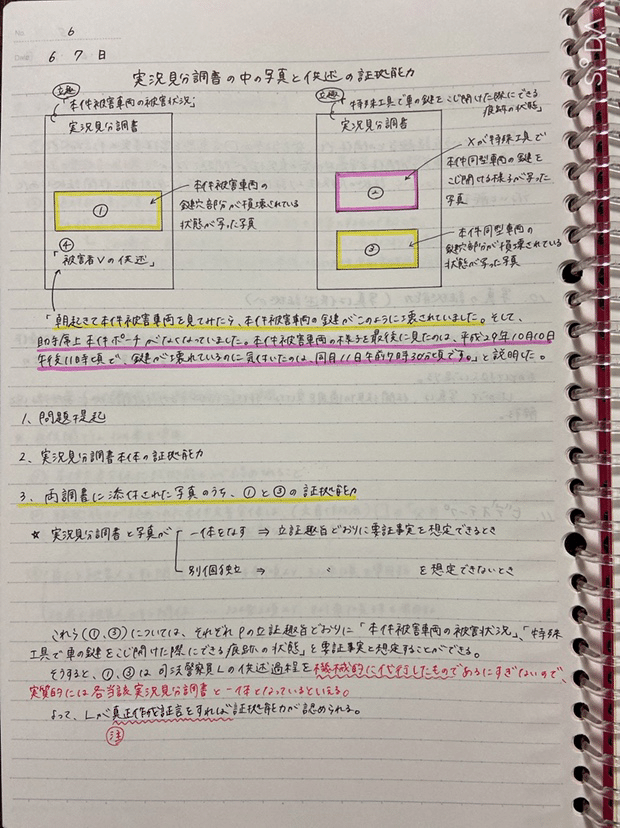 No. 6
Date 6 7 日
SIDA
実況見分調書の中の写真と供述の証拠能力
立趣
「本件被害車両の被害状況」
実況見分調書
①
本件被害車両の
鍵穴部分が損壊されている
状態が写った写真
④
「被害者Vの供述」
立趣
「特殊工具で車の鍵をこじ開けた際にできる
痕跡の状態」
実況見分調書
②
Xが特殊工具で
本件同型車両の鍵を
こじ開ける様子が写った
写真
③
本件同型車両の
鍵穴部分が損壊されている
状態が写った写真
「朝起きて本件被害車両を見てみたら、本件被害車両の鍵がこのように壊されていました。そして、
助手席上本件ポーチがなくなっていました。本件被害車両の様子を最後に見たのは、平成29年10月10日
午後11時頃で、鍵が壊れているのに気付いたのは、同月11日午前7時30分頃です。」と説明した。
1、問題提起
2、実況見分調書本体の証拠能力
3、両調書に添付された写真のうち、①と③の証拠能力
☆ 実況見分調書と写真が
一体をなす ⇒ 立証趣旨どおりに要証事実を想定できるとき
別個独立 ⇒ 〃 を想定できないとき
これら(①、③)については、それぞれPの立証趣旨どおりに「本件被害車両の被害状況」、「特殊
工具で車の鍵をこじ開けた際にできる痕跡の状態」と要証事実と想定することができる。
そうすると、①、③は司法警察員Lの供述過程を機械的に代行したものであるにすぎないので、
実質的には各当該実況見分調書と一体となっているといえる。
よって、Lが真正作成証言をすれば証拠能力が認められる。
注